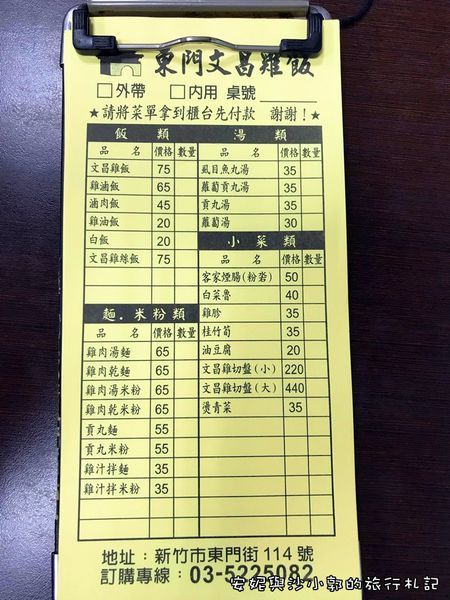 東門文昌雞飯
□外帶 □內用 桌號
★請將菜單拿到櫃台先付款 謝謝！★
飯類
品名 價格 數量
文昌雞飯 75
雞滷飯 65
滷肉飯 45
雞油飯 20
白飯 20
文昌雞絲飯 75
麵．米粉類
品名 價格 數量
雞肉湯麵 65
雞肉乾麵 65
雞肉湯米粉 65
雞肉乾米粉 65
貢丸麵 55
貢丸米粉 55
雞汁拌麵 35
雞汁拌米粉 35
湯類
品名 價格 數量
虱目魚丸湯 35
蘿蔔貢丸湯 35
貢丸湯 35
蘿蔔湯 30
小菜類
品名 價格 數量
客家煙腸(粉岩) 50
白菜魯 40
雞胗 35
桂竹筍 35
油豆腐 20
文昌雞切盤(小) 220
文昌雞切盤(大) 440
燙青菜 35
地址：新竹市東門街114號
訂購專線：03-5225082
安妮與沙小郭的旅行札記